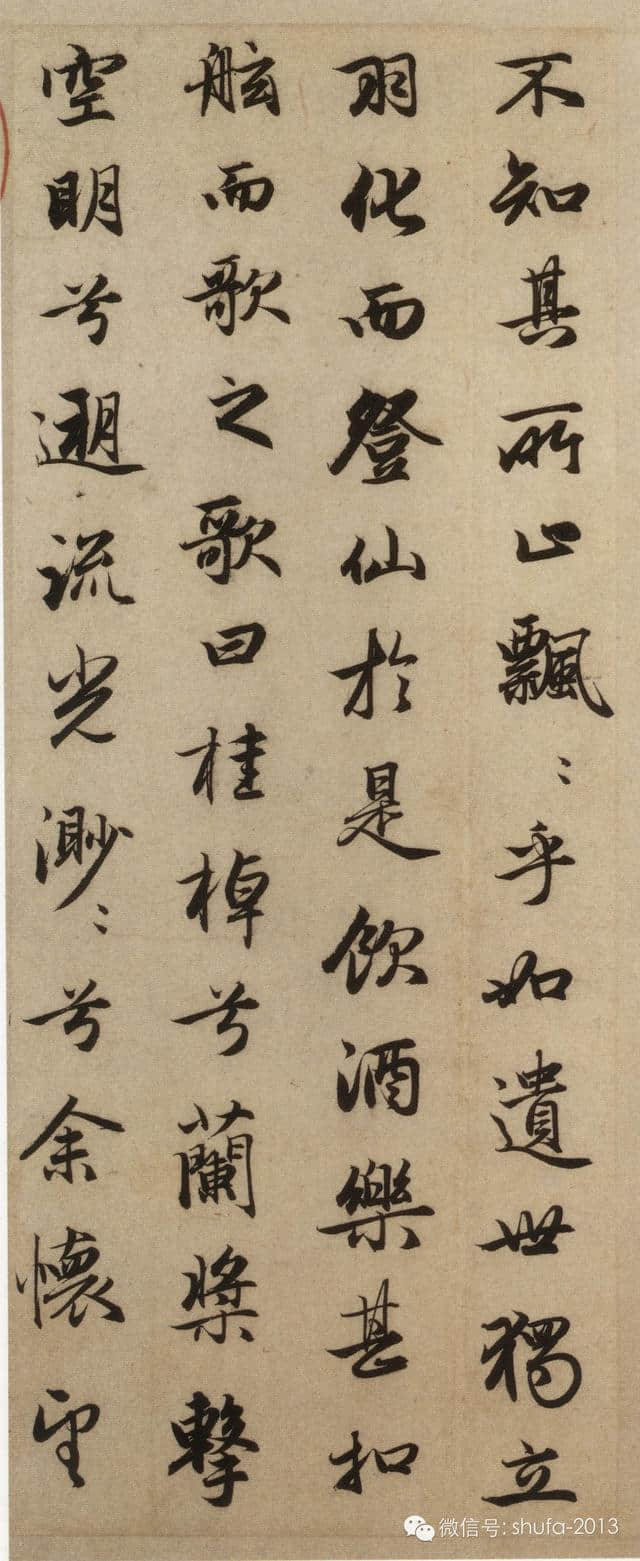 不知其所止飄〻乎如遺世獨立
羽化而登仙於是飲酒樂甚扣
舷而歌之歌曰桂棹兮蘭槳擊
空明兮遡流光渺〻兮余懷望
微信号: shufa-2013